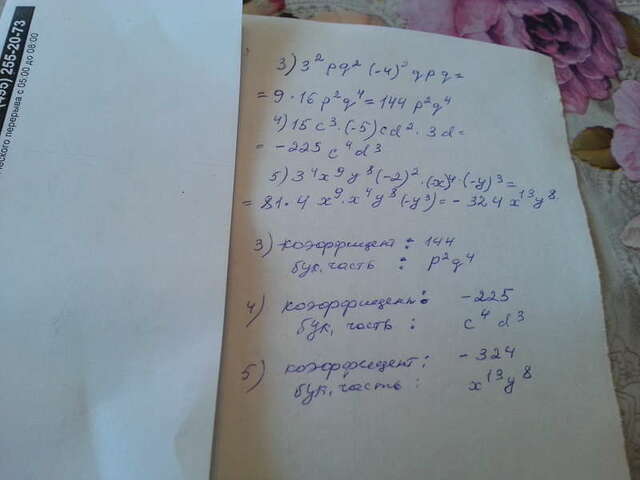 (495) 255-20-73
ческого перерыва с 05:00 до 08:00
3) 3² pq² (-4)² qpq =
= 9 · 16 p²q⁴ = 144 p²q⁴
4) 15 c³ · (-5) c d² · 3d =
= -225 c⁴ d³
5) 3⁴ x⁹ y⁸ (-2)² · (x)⁴ (-y)³ =
= 81 · 4 x⁹ · x⁴ y⁸ (-y³) = - 324 x¹³ y⁸.
3) коэффициент : 144
бук. часть : p²q⁴
4) коэффициент : -225
бук. часть : c⁴ d³
5) коэффициент : -324
бук. часть : x¹³ y⁸